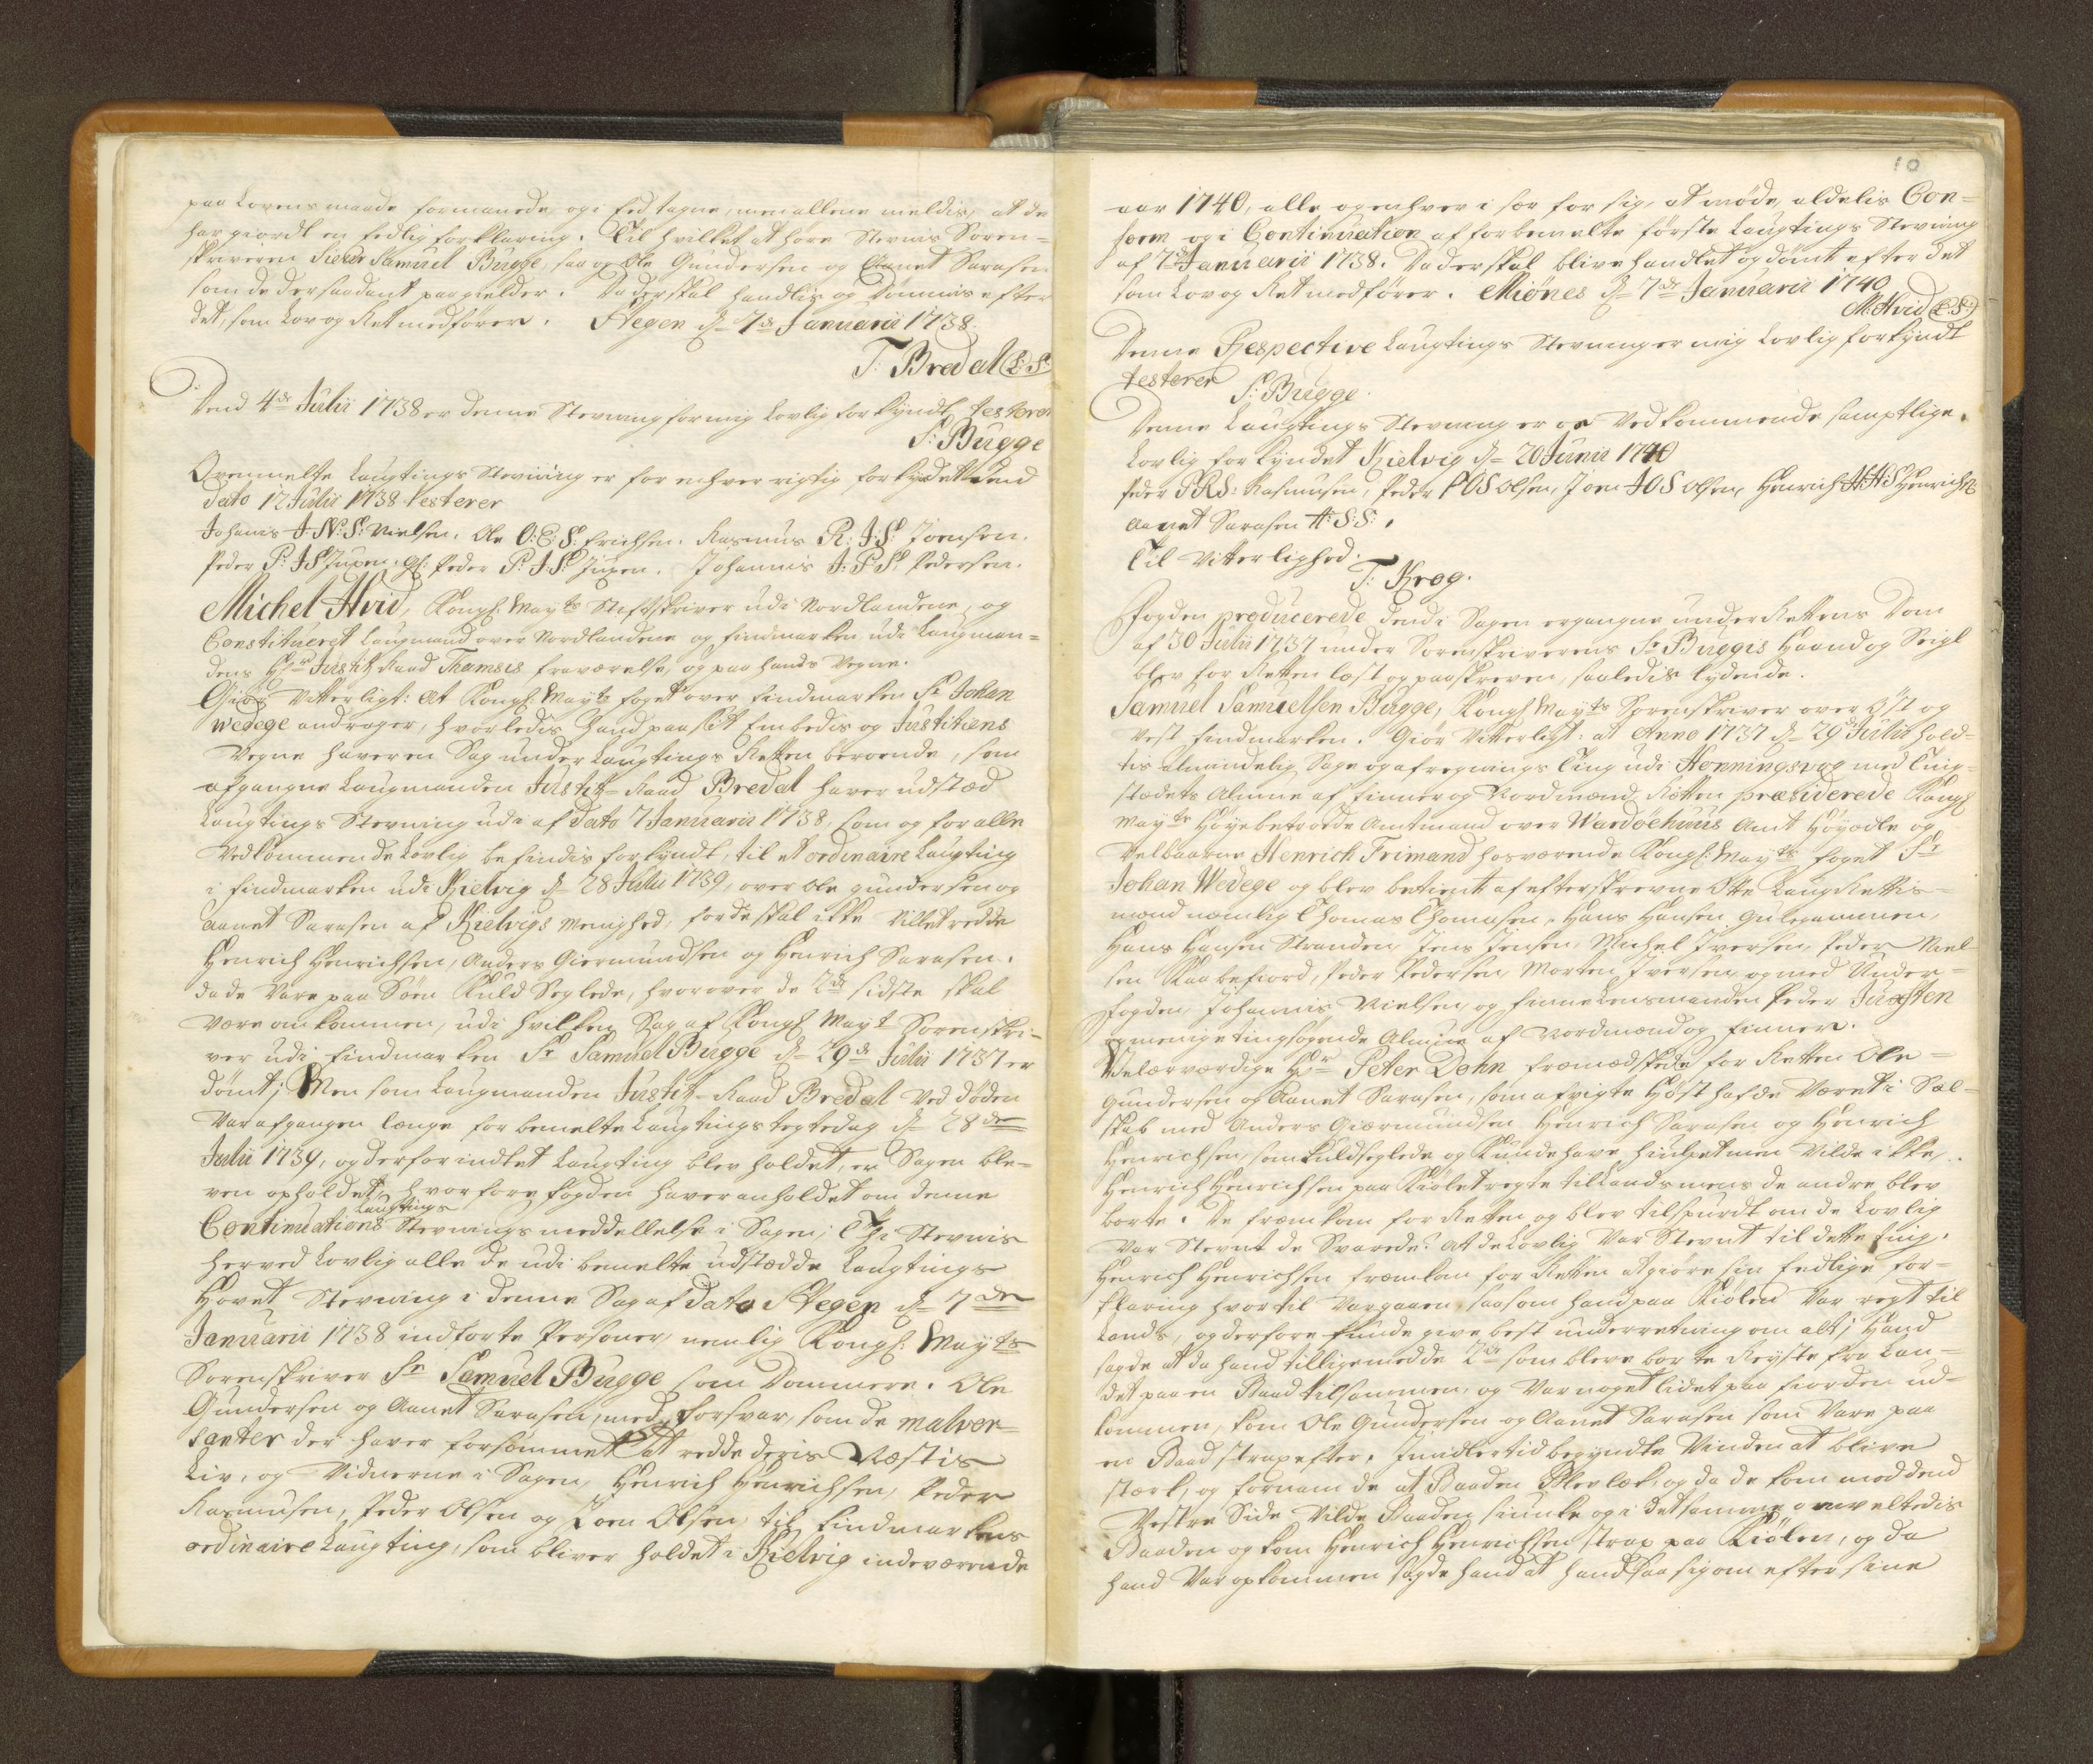 paa Lovens maade formanede, og i Eed tagne, men allene meldis, at de
har giordt en Eedlig forklaring. Til hvilket at høre Stevnis Soren-
skriveren Sieur Samuel Bugge, saa og Ole Gundersen og Aanet Sarasen
som de der saadant paagielder. Da der skal handlis og Dømmis efter
det, som Lov og Ret medfører. Stegen d 7de Januarii 1738.
T: Bredal (L:S:)
Dend 4de Julii 1738 er denne Stevning for mig Lovlig forkyndt testerer
S: Bugge
Ovenmelte Laugtings Stevning er for enhver rigtig forkyndt dend
dato 12 Julii 1738 testerer
Johanis J:N:S: Nielsen. Ole O:E:S: Erichsen. Rasmus R:J:S: Joensen.
Peder P:J:S Juxen. Gl: Peder P:J:S: Juxen. Johannis J:P:S: Pedersen.
Michel Hvid, Kongl: Mayts Stiftskriver udi Nordlandene, og
Constitueret Laugmand over Nordlandene og Findmarken udi Laugman-
dens Hr Justitz Raad Thamsis fraværelse, og paa hands Vegne.
Giør Vitterligt: At Kongl Mayts foget over Findmarken Sr Johan
Wedege andrager, hvorledis Hand paa sit Embedis og Justitiens
Vegne haver en Sag under Laugtings Retten beroende, som
afgangne Laugmanden Justitz-Raad Bredal haver udstæd
Laugtings Stevning udi af dato 7 Januarii 1738, som og for alle
Vedkommende Lovlig befindis forkyndt, til et ordinaire Laugting
i Findmarken udi Kielvig d 28 Julii 1739, over Ole Gundersen og
Aanet Sarasen af Kielvigs Menighed, for de skal ikke Villet redde
Henrich Henrichsen, Anders Giermundsen og Henrich Sarasen.
da de Vare paa Søen Kuld Seglede, hvorover de 2de sidste skal
være omkommen, udi hvilken Sag af Kongl Mayt Sorenskri-
ver udi Findmarken Sr Samuel Bugge d 29de Julii 1737 er
dømt; Men som Laugmanden Justitz-Raad Bredal Ved døden
Var afgangen længe for bemelte Laugtings tegtedag d 28de
Julii 1739, og derfor indtet Laugting blev holdet, er Sagen ble-
ven opholdet, hvorfore fogden haver anholdet om denne
Continuations Laugtings Stevnings meddellelse i Sagen; Thi Stevnis
herved Lovlig alle de udi bemelte udstædde Laugtings
Hovet Stevning i denne Sag af dato Stegen d 7de
Januarii 1738 indførte Personer, nemlig Kongl: Mayts
Sorenskriver Sr Samuel Bugge som Dommere. Ole
Gundersen og Aanet Sarasen, med forsvar, som de malver-
santer der haver forsømmet at redde deris Næstis
Liv, og Vidnerne i Sagen, Henrich Henrichsen, Peder
Rasmusen, Peder Olsen og Joen Olsen, til Findmarkens
ordinaire Laugting, som bliver holdet i Kielvig indeværende
10
aar 1740, alle og enhver i sær for sig, at møde aldelis Con-
form og i Continuation af forbemelte første Laugtings Stevning
af 7de Januarii 1738. Da der skal blive handlet og dømt efter det
som Lov og Ret medfører. Miønes d 7de Januarii 1740.
M: Hvid (L:S:)
Denne Respective Laugtings Stevning er mig Lovlig forkyndt
testerer
S: Bugge.
Denne Laugtings Stevning er os Vedkommende samptlige.
Lovlig forkyndet Kielvig d 20 Junii 1740
Peder P R S: Rasmusen, Peder P O S Olsen, Joen J O S Olsen, Henrich H H S Henrichs:
Aanet Sarasen A:S:S:.
Til Vitterlighed.
T: Krog.
Fogden producerede dend i Sagen ergangne under Rettens Dom
af 30 Julii 1737 under Sorenskriverens Sr Buggis Haand og Seigl
blev for Retten læst og paaskreven, saaledis lydende.
Samuel Samuelsen Bugge, Kongl Mayts Sorenskriver over Øst og
Vest Findmarken. Giør Vitterligt: at Anno 1737 d 29de Julii hold-
tis almindelig Sage og afregnings Ting udi Honningsvog med Ting-
stædets Almue af Finner og Nordmænd, Retten præsiderede Kongl
Mayts Høyebetroede Amtmand over Wardøehuus Amt Høyædle og
Velbaarne Henrich Frimand hosværende Kongl: Mayts foget Sr
Johan Wedege og blev betient af efterskrevne Otte Laug Rettis-
mænd nemlig Thomas Thomasen, Hans Hansen Gulegammen,
Hans Hansen Stranden Jens Jensen, Michel Jversen, Peder Niel-
sen Kaabefiord, Peder Pedersen Morten Jversen og med Under-
fogden Johannis Nielsen og Finnelensmanden Peder Juxsten
og menige tingsøgende Almue af Nordmænd og Finner.
Velærværdige Hr Peter Dohn fremædskede for Retten Ole
Gundersen og Aanet Sarasen, som afvigte Høst hafde Været i Sæl-
skab med Anders Giærmundsen Henrich Sarasen og Henrich
Henrichsen, som kuldseglede og Kunde have hiulpet men Vilde ikke,
Henrich Henrichsen paa Kiølet regte til Lands mens de andre blev
borte. De fremkom for Retten og blev tilspurdt om de Lovlig
Var Stevnt de Svarede: At de Lovlig Var Stevnt til dette Ting.
Henrich Henrichsen fremkom for Retten at giøre sin Eedlige for-
klaring hvor til Vaargaaen, saasom hand paa Kiølen Var regt til
Lands, og derfore kunde give best underretning om alt; Hand
sagde at da hand tilligemedde 2de som bleve borte Reyste fra Lan-
det paa en Baad tilsammen, og Var noget lidet paa fiorden ud-
kommen, kom Ole Gundersen og Aanet Sarasen som Vare paa
en Baad strax efter. Jmidlertid begyndte Vinden at blive
stærk, og fornam de at Baaden Blev læk, og da de kom mod dend
Vestre Side Vilde Baaden siunke og i det samme omveltedis
Baaden og kom Henrich Henrichsen strax paa Kiølen, og da
hand Var opkommen sagde hand at hand saa sig om efter sine